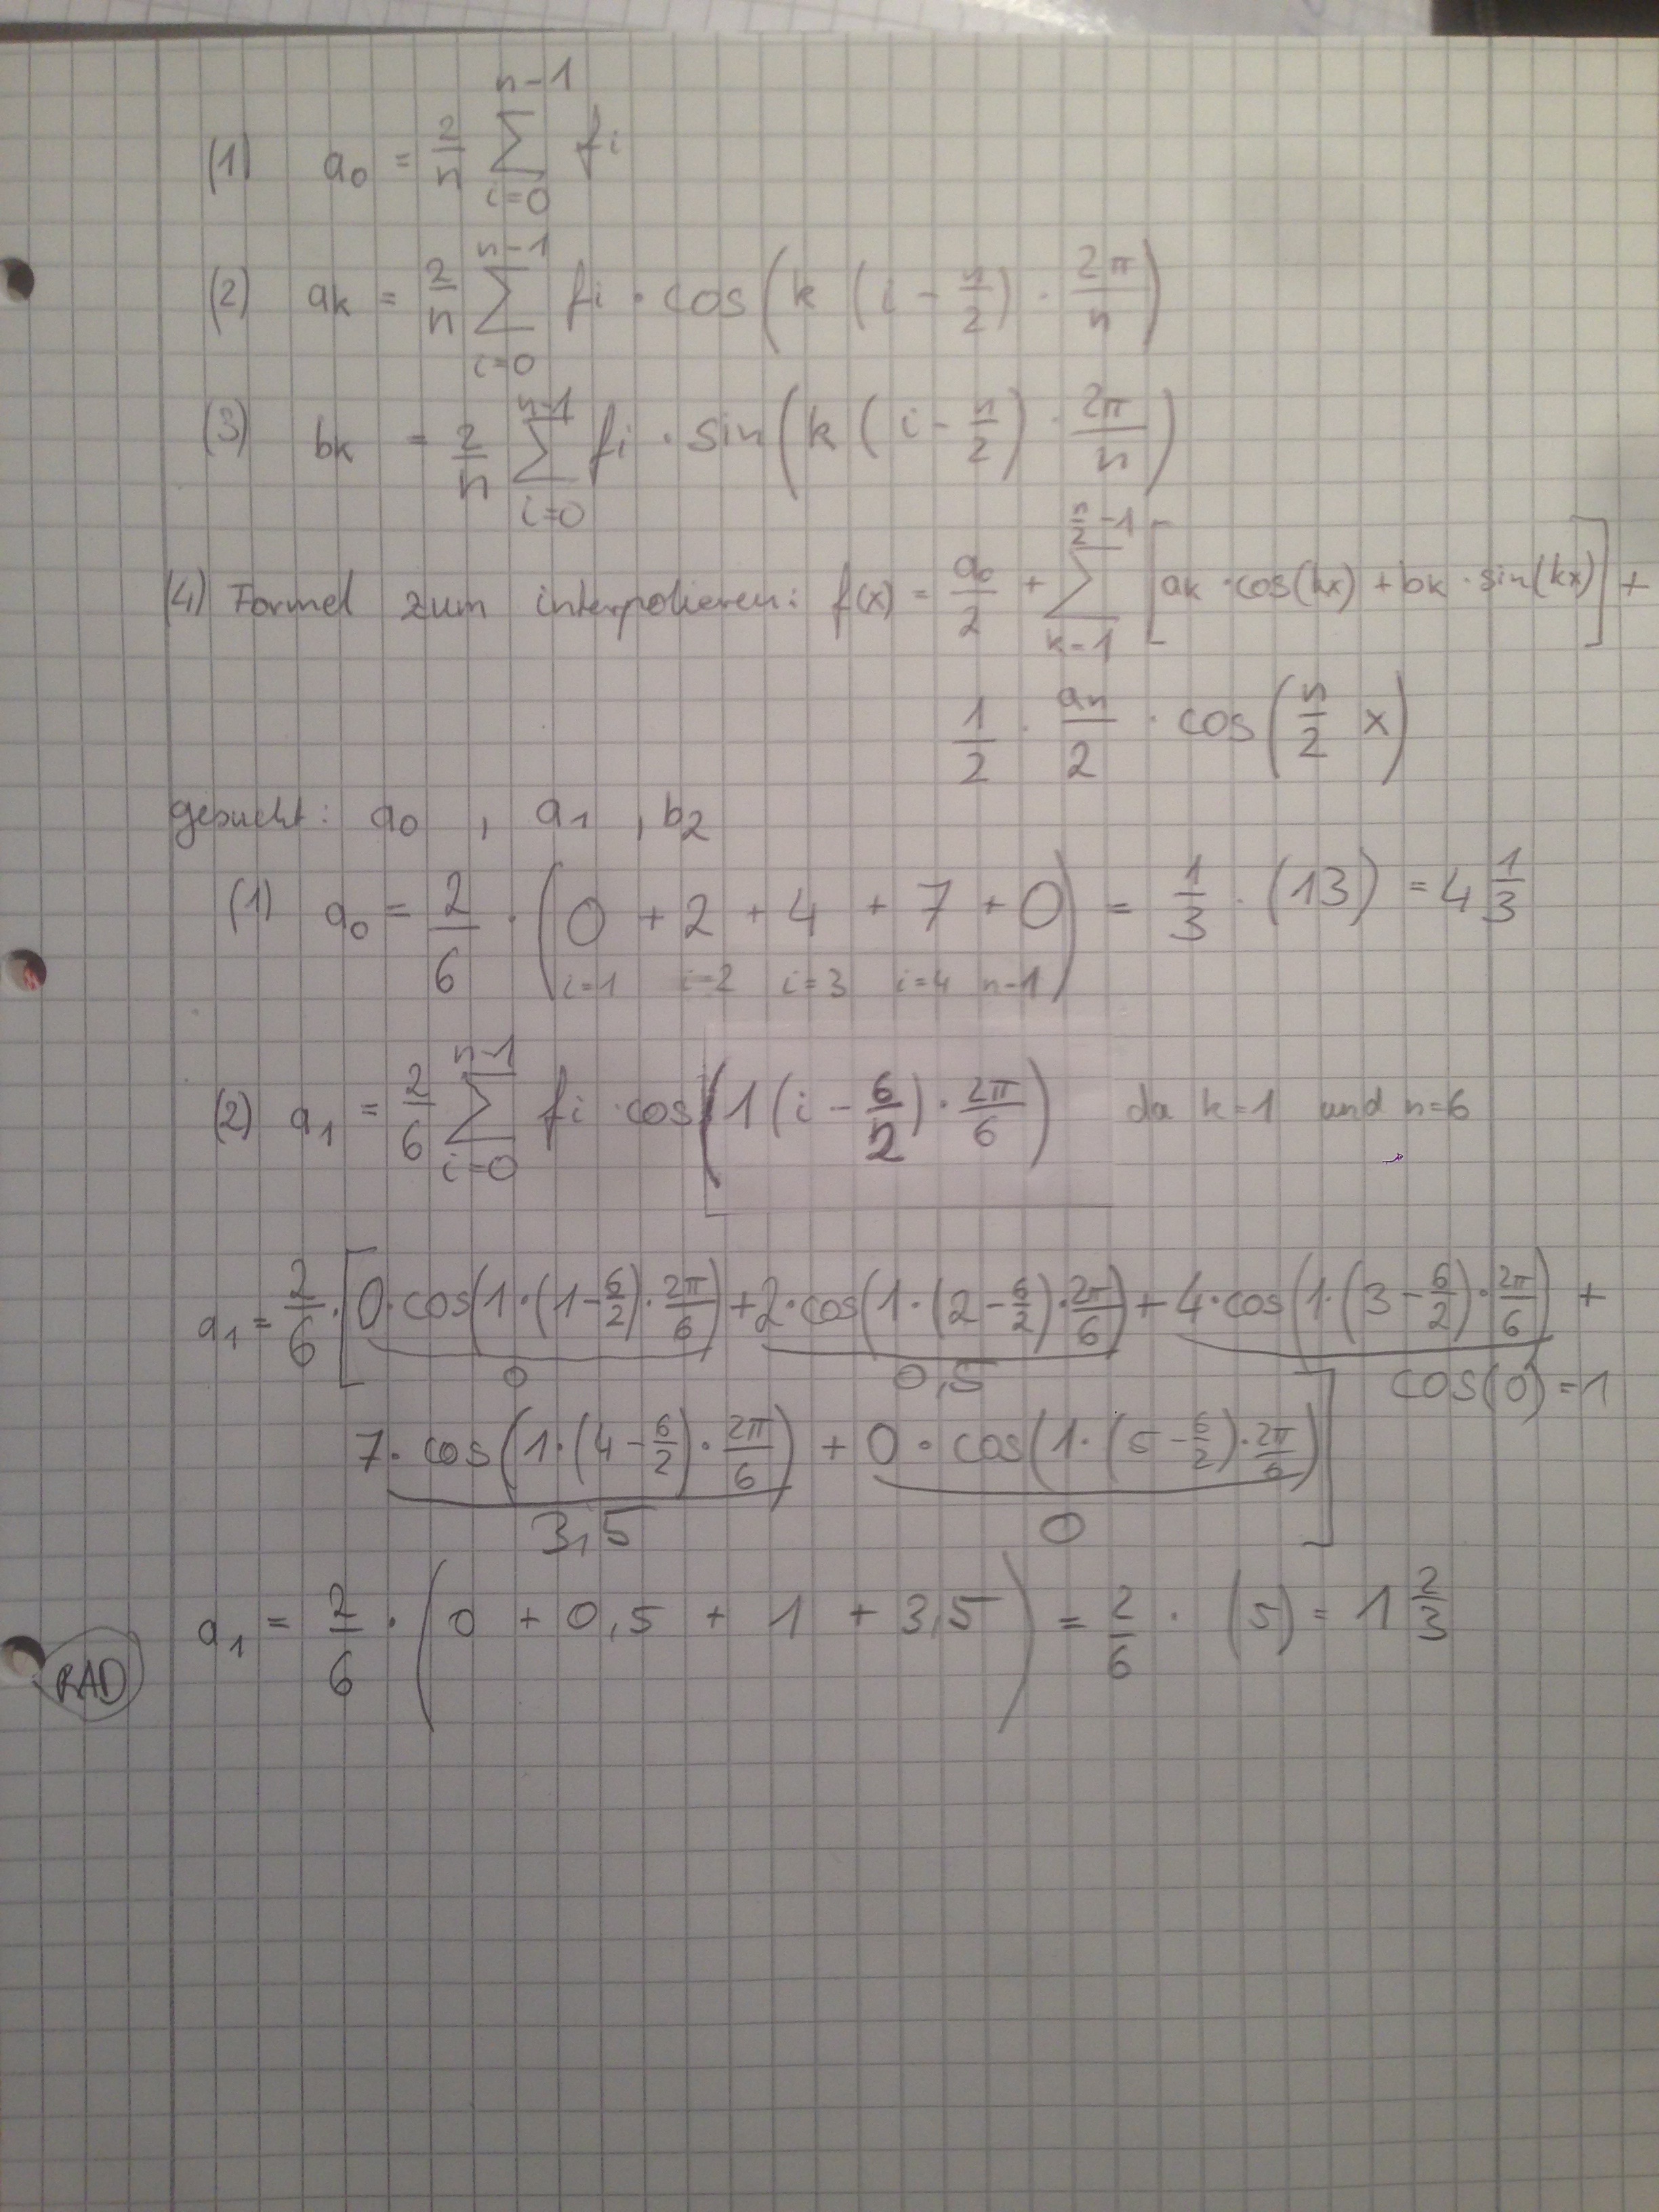 (1) a₀ = 2/n ∑_{i=0}^{n-1} fi
(2) ak = 2/n ∑_{i=0}^{n-1} fi · cos(k (i - n/2) · 2π/n)
(3) bk = 2/n ∑_{i=0}^{n-1} fi · sin(k (i - n/2) · 2π/n)
(4) Formel zum interpolieren: f(x) = a₀/2 + ∑_{k=1}^{n/2 -1} [ak · cos(kx) + bk · sin(kx)] +
1/2 · an/2 · cos(n/2 x)
gesucht: a₀ , a₁ , b₂
(1) a₀ = 2/6 · (0 + 2 + 4 + 7 + 0) = 1/3 · (13) = 4 1/3
i=1 i=2 i=3 i=4 n-1
(2) a₁ = 2/6 ∑_{i=0}^{n-1} fi · cos(1(i - 6/2) · 2π/6) da k=1 und n=6
a₁ = 2/6 · [0·cos(1·(1-6/2)·2π/6) + 2·cos(1·(2-6/2)·2π/6) + 4·cos(1·(3-6/2)·2π/6) +
0 0,5 cos(0)=1
7·cos(1·(4-6/2)·2π/6) + 0·cos(1·(5-6/2)·2π/6)]
3,5 0
a₁ = 2/6 · (0 + 0,5 + 1 + 3,5) = 2/6 · (5) = 1 2/3
RAD